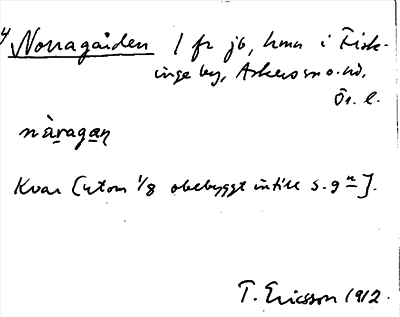 Norragården 1 fr jb, hmn i Fisk-
inge by, Askers sn o. hd,
Ör. l.
nàragan
Kvar [utom 1/8 obebyggt intill s. g n].
T. Ericsson 1912.